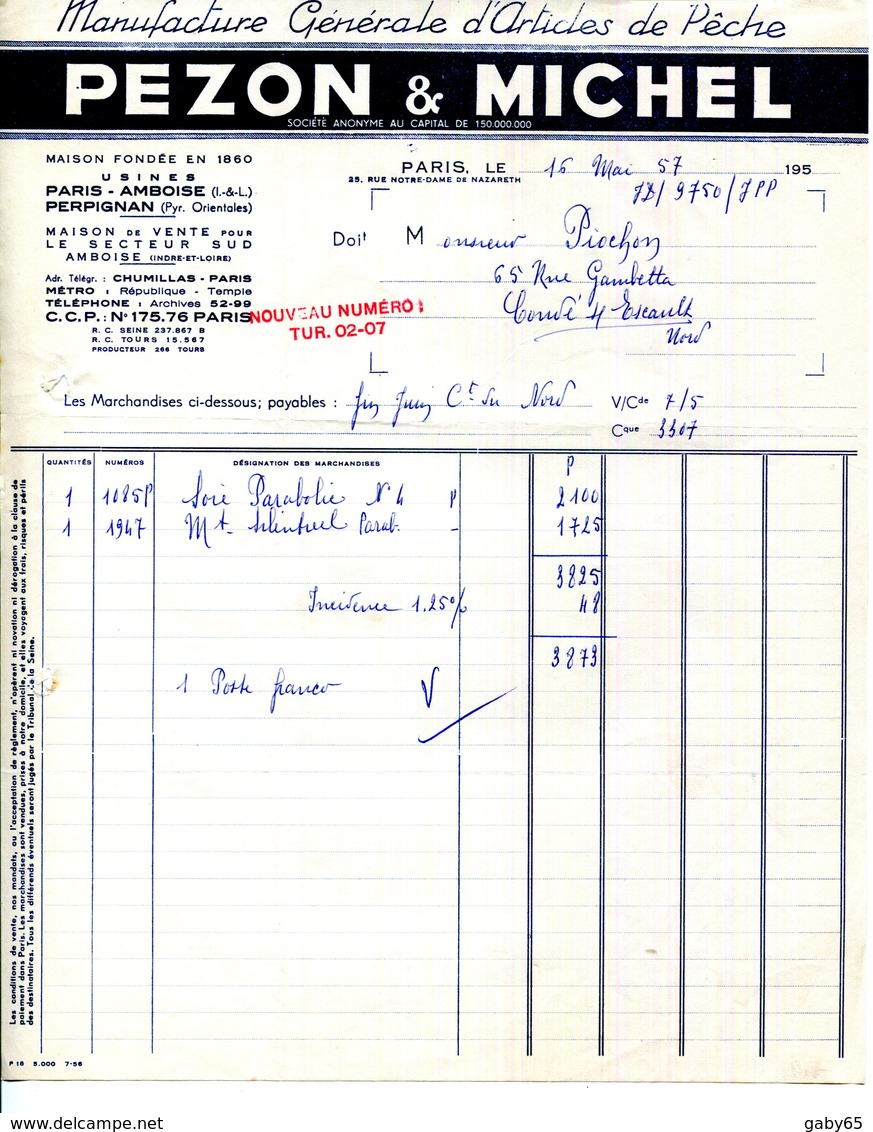 Manufacture Générale d'Articles de Pêche
PEZON & MICHEL
SOCIÉTÉ ANONYME AU CAPITAL DE 150.000.000
MAISON FONDÉE EN 1860
USINES
PARIS - AMBOISE (I.-&-L.)
PERPIGNAN (Pyr. Orientales)
MAISON DE VENTE POUR
LE SECTEUR SUD
AMBOISE (INDRE-ET-LOIRE)
Adr. Télégr. : CHUMILLAS - PARIS
MÉTRO : République - Temple
TÉLÉPHONE : Archives 52-99
C.C.P. : N° 175.76 PARIS
R. C. SEINE 237.867 B
R. C. TOURS 15.567
PRODUCTEUR 266 TOURS
NOUVEAU NUMÉRO :
TUR. 02-07
PARIS, LE 16 Mai 57 195
25, RUE NOTRE-DAME DE NAZARETH
JD/9750/JPP
Doit Monsieur Piochon
65 Rue Gambetta
Condé s/ Escault
Nord
Les Marchandises ci-dessous; payables : fin Juin Ct du Nord V/Cde 7/5
Cque 3307
QUANTITÉS NUMÉROS DÉSIGNATION DES MARCHANDISES P
1 1085P Soie Parabolic N° 4 P 2100
1 1947 Mt Parab. - 1725
3825
Incidence 1.25% 48
3873
1 Poste franco V
Les conditions de vente, nos mandats, ou l'acceptation de règlement, n'opèrent ni novation ni dérogation à la clause de
paiement dans Paris. Les marchandises sont vendues, prises à notre domicile, et elles voyagent aux frais, risques et périls
des destinataires. Tous les différends éventuels seront jugés par le Tribunal de la Seine.
P 18 5.000 7-56
gaby65